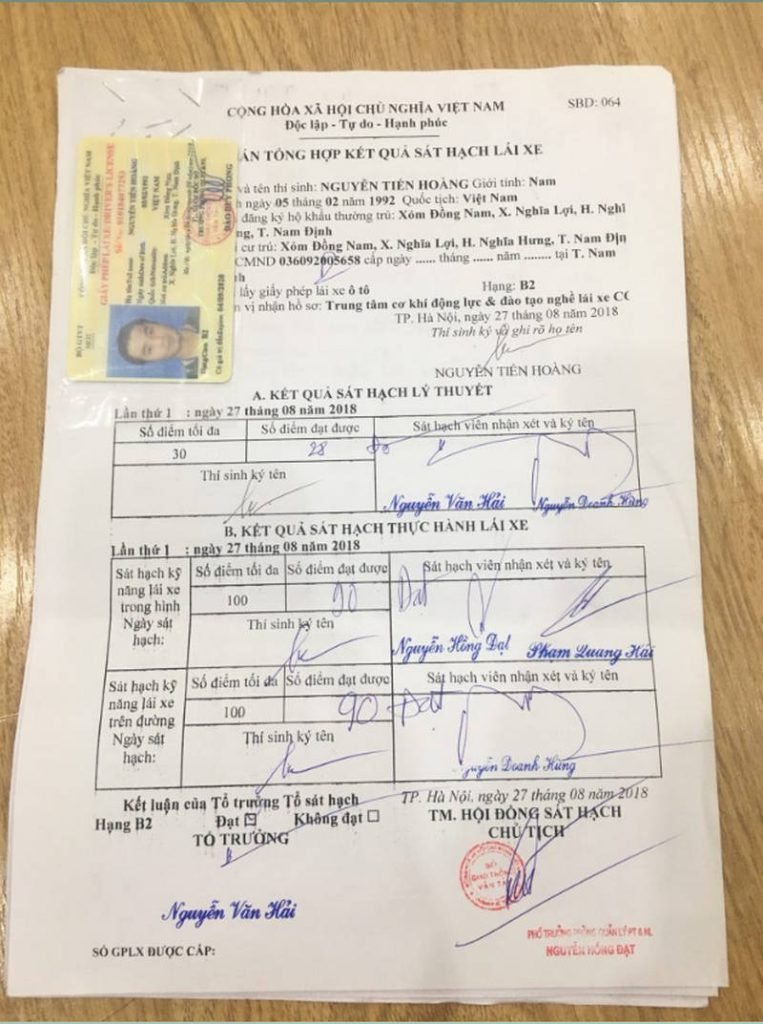 CỘNG HÒA XÃ HỘI CHỦ NGHĨA VIỆT NAM
SBD: 064
Độc lập - Tự do - Hạnh phúc
ẢN TỔNG HỢP KẾT QUẢ SÁT HẠCH LÁI XE
và tên thí sinh: NGUYỄN TIẾN HOÀNG Giới tính: Nam
h ngày 05 tháng 02 năm 1992 Quốc tịch: Việt Nam
đăng ký hộ khẩu thường trú: Xóm Đồng Nam, X. Nghĩa Lợi, H. Nghĩ
ng, T. Nam Định
cư trú: Xóm Đồng Nam, X. Nghĩa Lợi, H. Nghĩa Hưng, T. Nam Địn
CMND 036092005658 cấp ngày ...... tháng ...... năm ........ tại T. Nam
nh
lấy giấy phép lái xe ô tô
Hạng: B2
n vị nhận hồ sơ: Trung tâm cơ khí động lực & đào tạo nghề lái xe CC
TP. Hà Nội, ngày 27 tháng 08 năm 2018
Thí sinh ký và ghi rõ họ tên
NGUYỄN TIẾN HOÀNG
GIẤY PHÉP LÁI XE/DRIVER'S LICENSE
NGUYỄN TIẾN HOÀNG
05/02/1992
VIỆT NAM
BỘ GTVT
MOT
Hạng/Class B2
ĐÀO DUY PHONG
A. KẾT QUẢ SÁT HẠCH LÝ THUYẾT
Lần thứ 1 : ngày 27 tháng 08 năm 2018
Số điểm tối đa Số điểm đạt được Sát hạch viên nhận xét và ký tên
30 28
Thí sinh ký tên
Nguyễn Văn Hải Nguyễn Doanh Hùng
B. KẾT QUẢ SÁT HẠCH THỰC HÀNH LÁI XE
Lần thứ 1 : ngày 27 tháng 08 năm 2018
Sát hạch kỹ năng lái xe trong hình Ngày sát hạch:
Số điểm tối đa Số điểm đạt được Sát hạch viên nhận xét và ký tên
100 90 Đạt
Thí sinh ký tên
Nguyễn Hồng Đạt Phạm Quang Hải
Sát hạch kỹ năng lái xe trên đường Ngày sát hạch:
Số điểm tối đa Số điểm đạt được Sát hạch viên nhận xét và ký tên
100 90 Đạt
Thí sinh ký tên
Nguyễn Doanh Hùng
Kết luận của Tổ trưởng Tổ sát hạch
TP. Hà Nội, ngày 27 tháng 08 năm 2018
Hạng B2 Đạt Không đạt
TM. HỘI ĐỒNG SÁT HẠCH
TỔ TRƯỞNG
CHỦ TỊCH
SỞ
GIAO THÔNG
VẬN TẢI
Nguyễn Văn Hải
PHÓ TRƯỞNG PHÒNG QUẢN LÝ PT & NL
NGUYỄN HỒNG ĐẠT
SỐ GPLX ĐƯỢC CẤP: